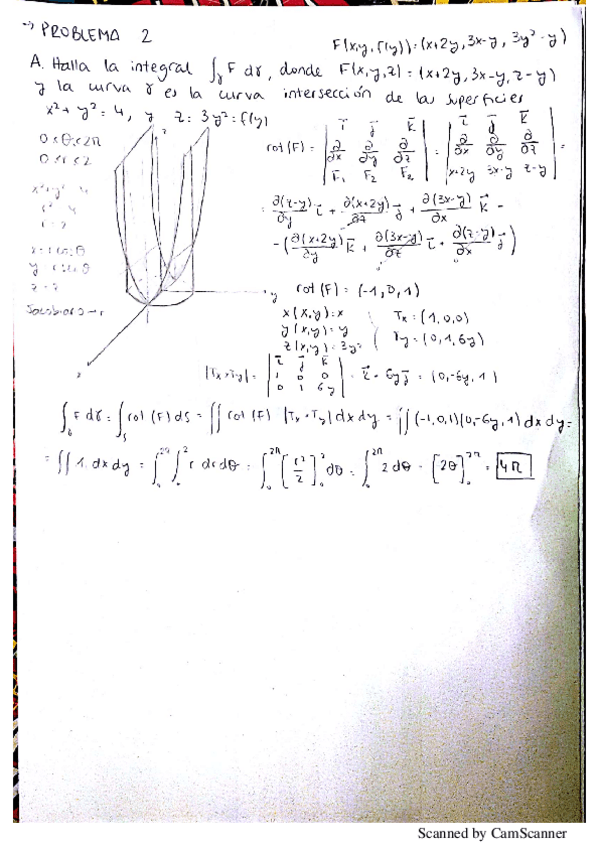 → PROBLEMA 2
F(x,y,f(y)) = (x+2y, 3x-y, 3y²-y)
A. Halla la integral ∫γ F dr, donde F(x,y,z) = (x+2y, 3x-y, z-y)
y la curva γ es la curva intersección de las superficies
x² + y² = 4, y z = 3y² = f(y)
0 ≤ θ ≤ 2π
0 ≤ r ≤ 2
rot(F) = | i j k ; ∂/∂x ∂/∂y ∂/∂z ; F₁ F₂ F₂ | = | i j k ; ∂/∂x ∂/∂y ∂/∂z ; x+2y 3x-y z-y | =
= ∂(z-y)/∂y i + ∂(x+2y)/∂z j + ∂(3x-y)/∂x k -
- (∂(x+2y)/∂y k + ∂(3x-y)/∂z i + ∂(z-y)/∂x j)
Jacobiano → r
rot(F) = (-1, 0, 1)
x(x,y) = x
y(x,y) = y
z(x,y) = 3y²
Tx = (1,0,0)
Ty = (0,1,6y)
|Tx × Ty| = | i j k ; 1 0 0 ; 0 1 6y | = k - 6yj = (0,-6y,1)
∫γ F dr = ∫S rot(F) dS = ∬ rot(F) |Tx × Ty| dx dy = ∬ (-1,0,1)(0,-6y,1) dx dy =
= ∬ 1 dx dy = ∫₀^2π ∫₀² r dr dθ = ∫₀^2π [r²/2]₀² dθ = ∫₀^2π 2 dθ = [2θ]₀^2π = 4π
Scanned by CamScanner